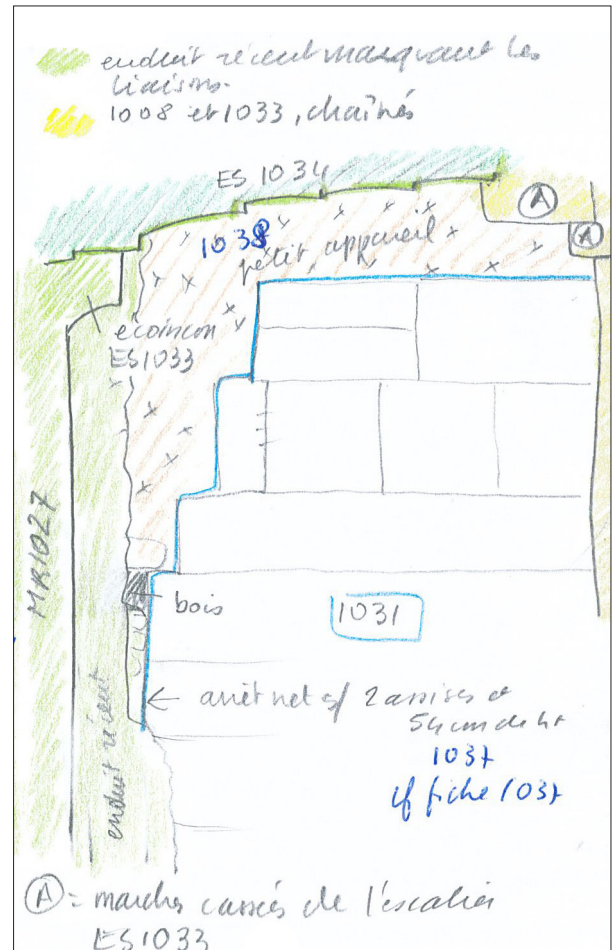 enduit récent masquant les
liaisons.
1008 et 1033, chaînés
ES 1034
A
A
1038
petit appareil
écoinçon
ES1033
MR1027
bois
1031
arrêt net s/ 2 assises et
54 cm de ht
1037
cf fiche 1037
enduit récent
A = marches cassées de l'escalier
ES1033